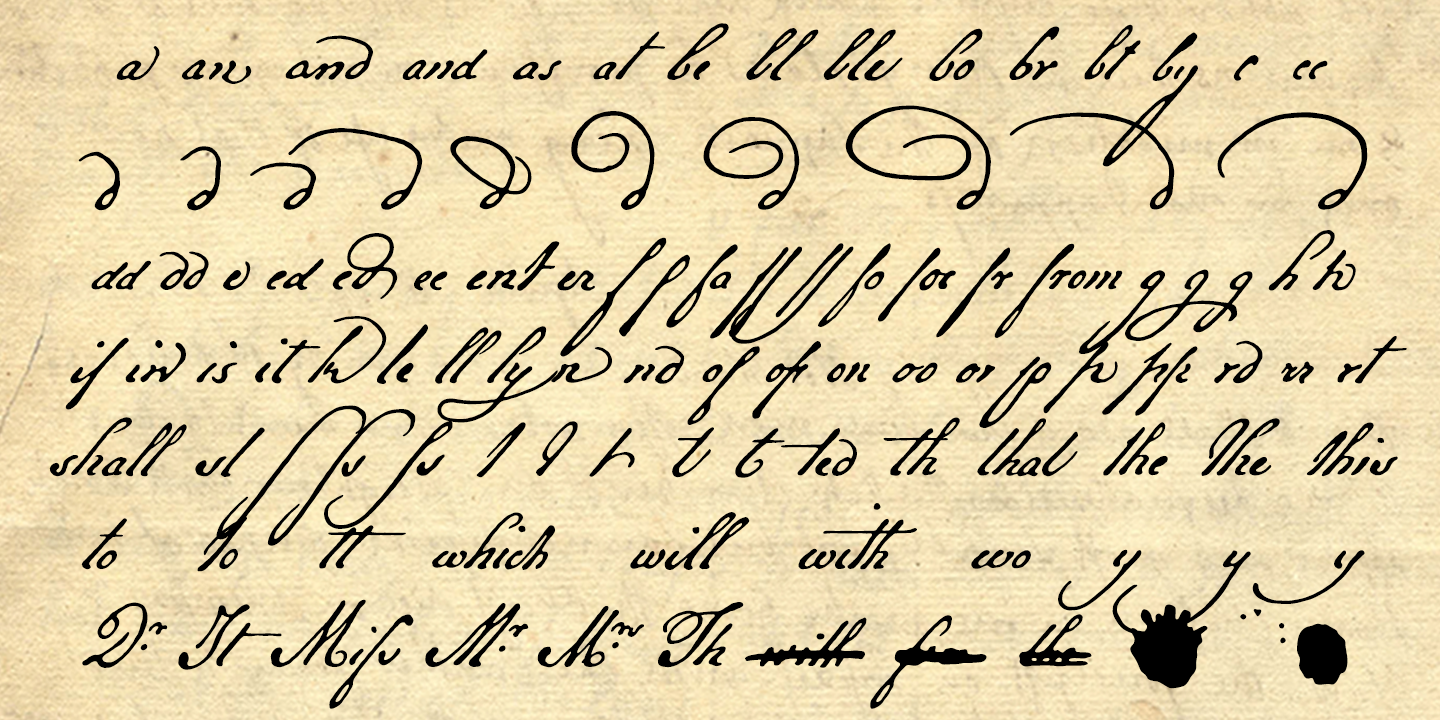 a an and and as at be bl ble bo br bt by c cc
d d d d d d d d d
dd dd e ed ed ee ent er f f fa ff ff fo for fr from g g g h h
if in is it k le ll ly n nd of of on oo or p p pp rd rr rt
shall st ſ ſs ſs t t t t t ted th that the the this
to to tt which will with wo y y y
Dr. It Miſs Mr. Mrs. Th with for the